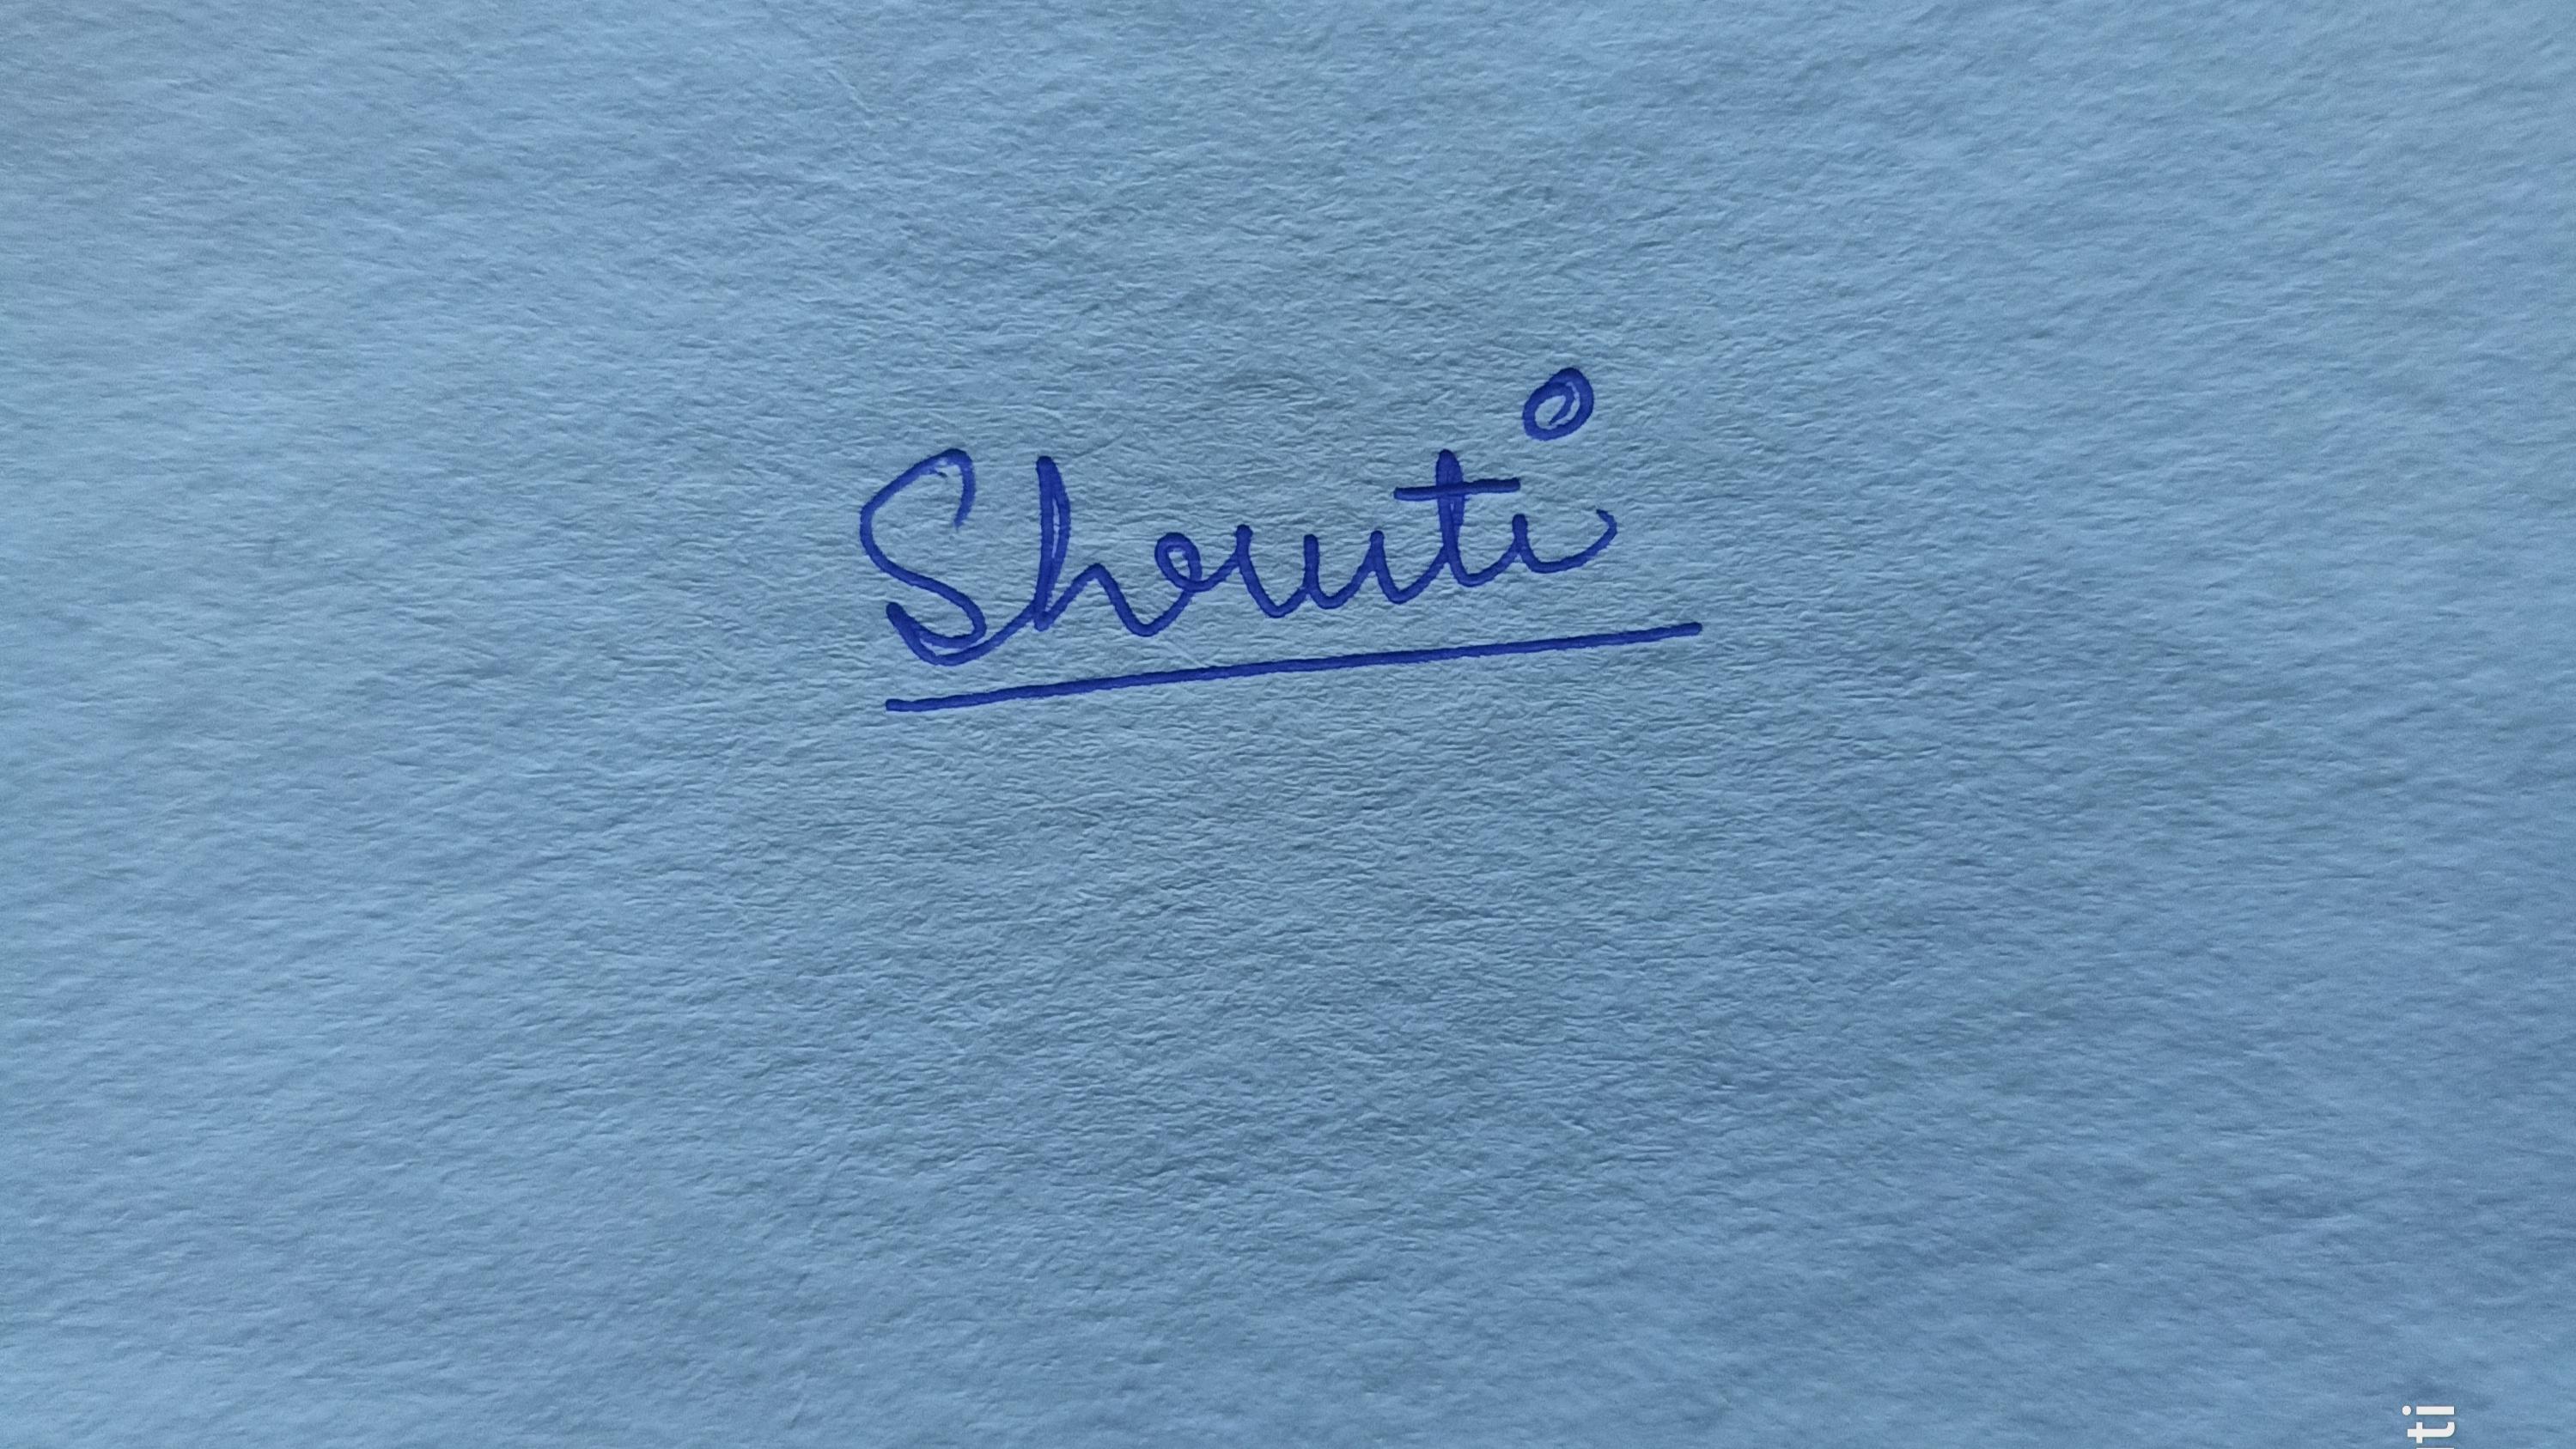 Shruti
ti